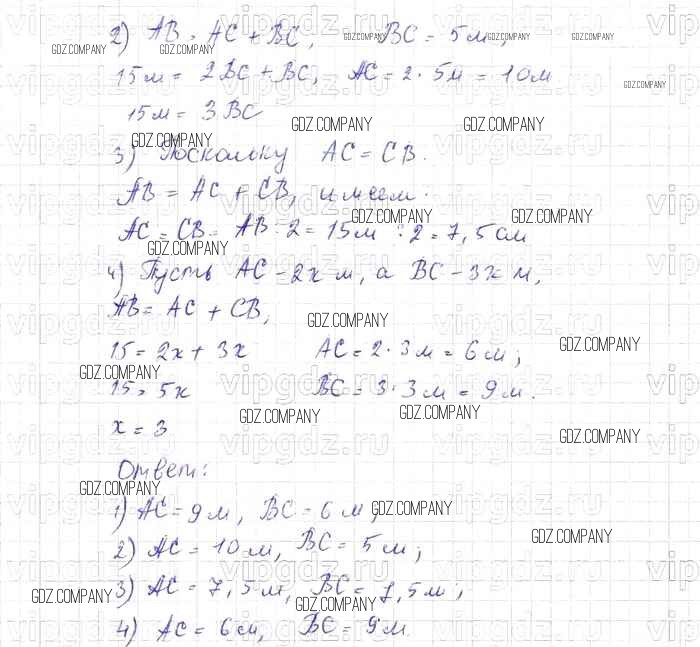 2) AB = AC + BC, BC = 5 м,
15 м = 2BC + BC, AC = 2 · 5 м = 10 м
15 м = 3 BC
3) Поскольку AC = CB.
AB = AC + CB, имеем.
AC = CB = AB : 2 = 15 м : 2 = 7,5 см
4) Пусть AC – 2x м, а BC – 3x м,
AB = AC + CB,
15 = 2x + 3x AC = 2 · 3 м = 6 м;
15 = 5x BC = 3 · 3 м = 9 м.
x = 3
Ответ:
1) AC = 9 м, BC = 6 м;
2) AC = 10 м, BC = 5 м;
3) AC = 7,5 м, BC = 7,5 м;
4) AC = 6 м, BC = 9 м.